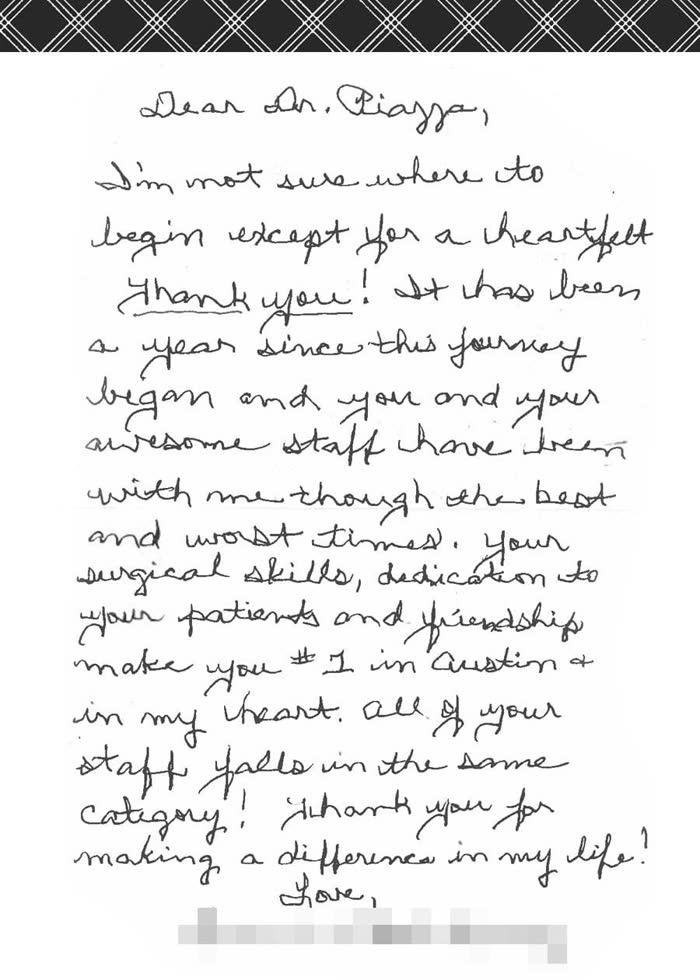 Dear Dr. Piazza,
I'm not sure where to
begin except for a heartfelt
Thank you! It has been
a year since this journey
began and you and your
awesome staff have been
with me though the best
and worst times. Your
surgical skills, dedication to
your patients and friendship
make you #1 in Austin &
in my heart. All of your
staff falls in the same
category! Thank you for
making a difference in my life!
Love,